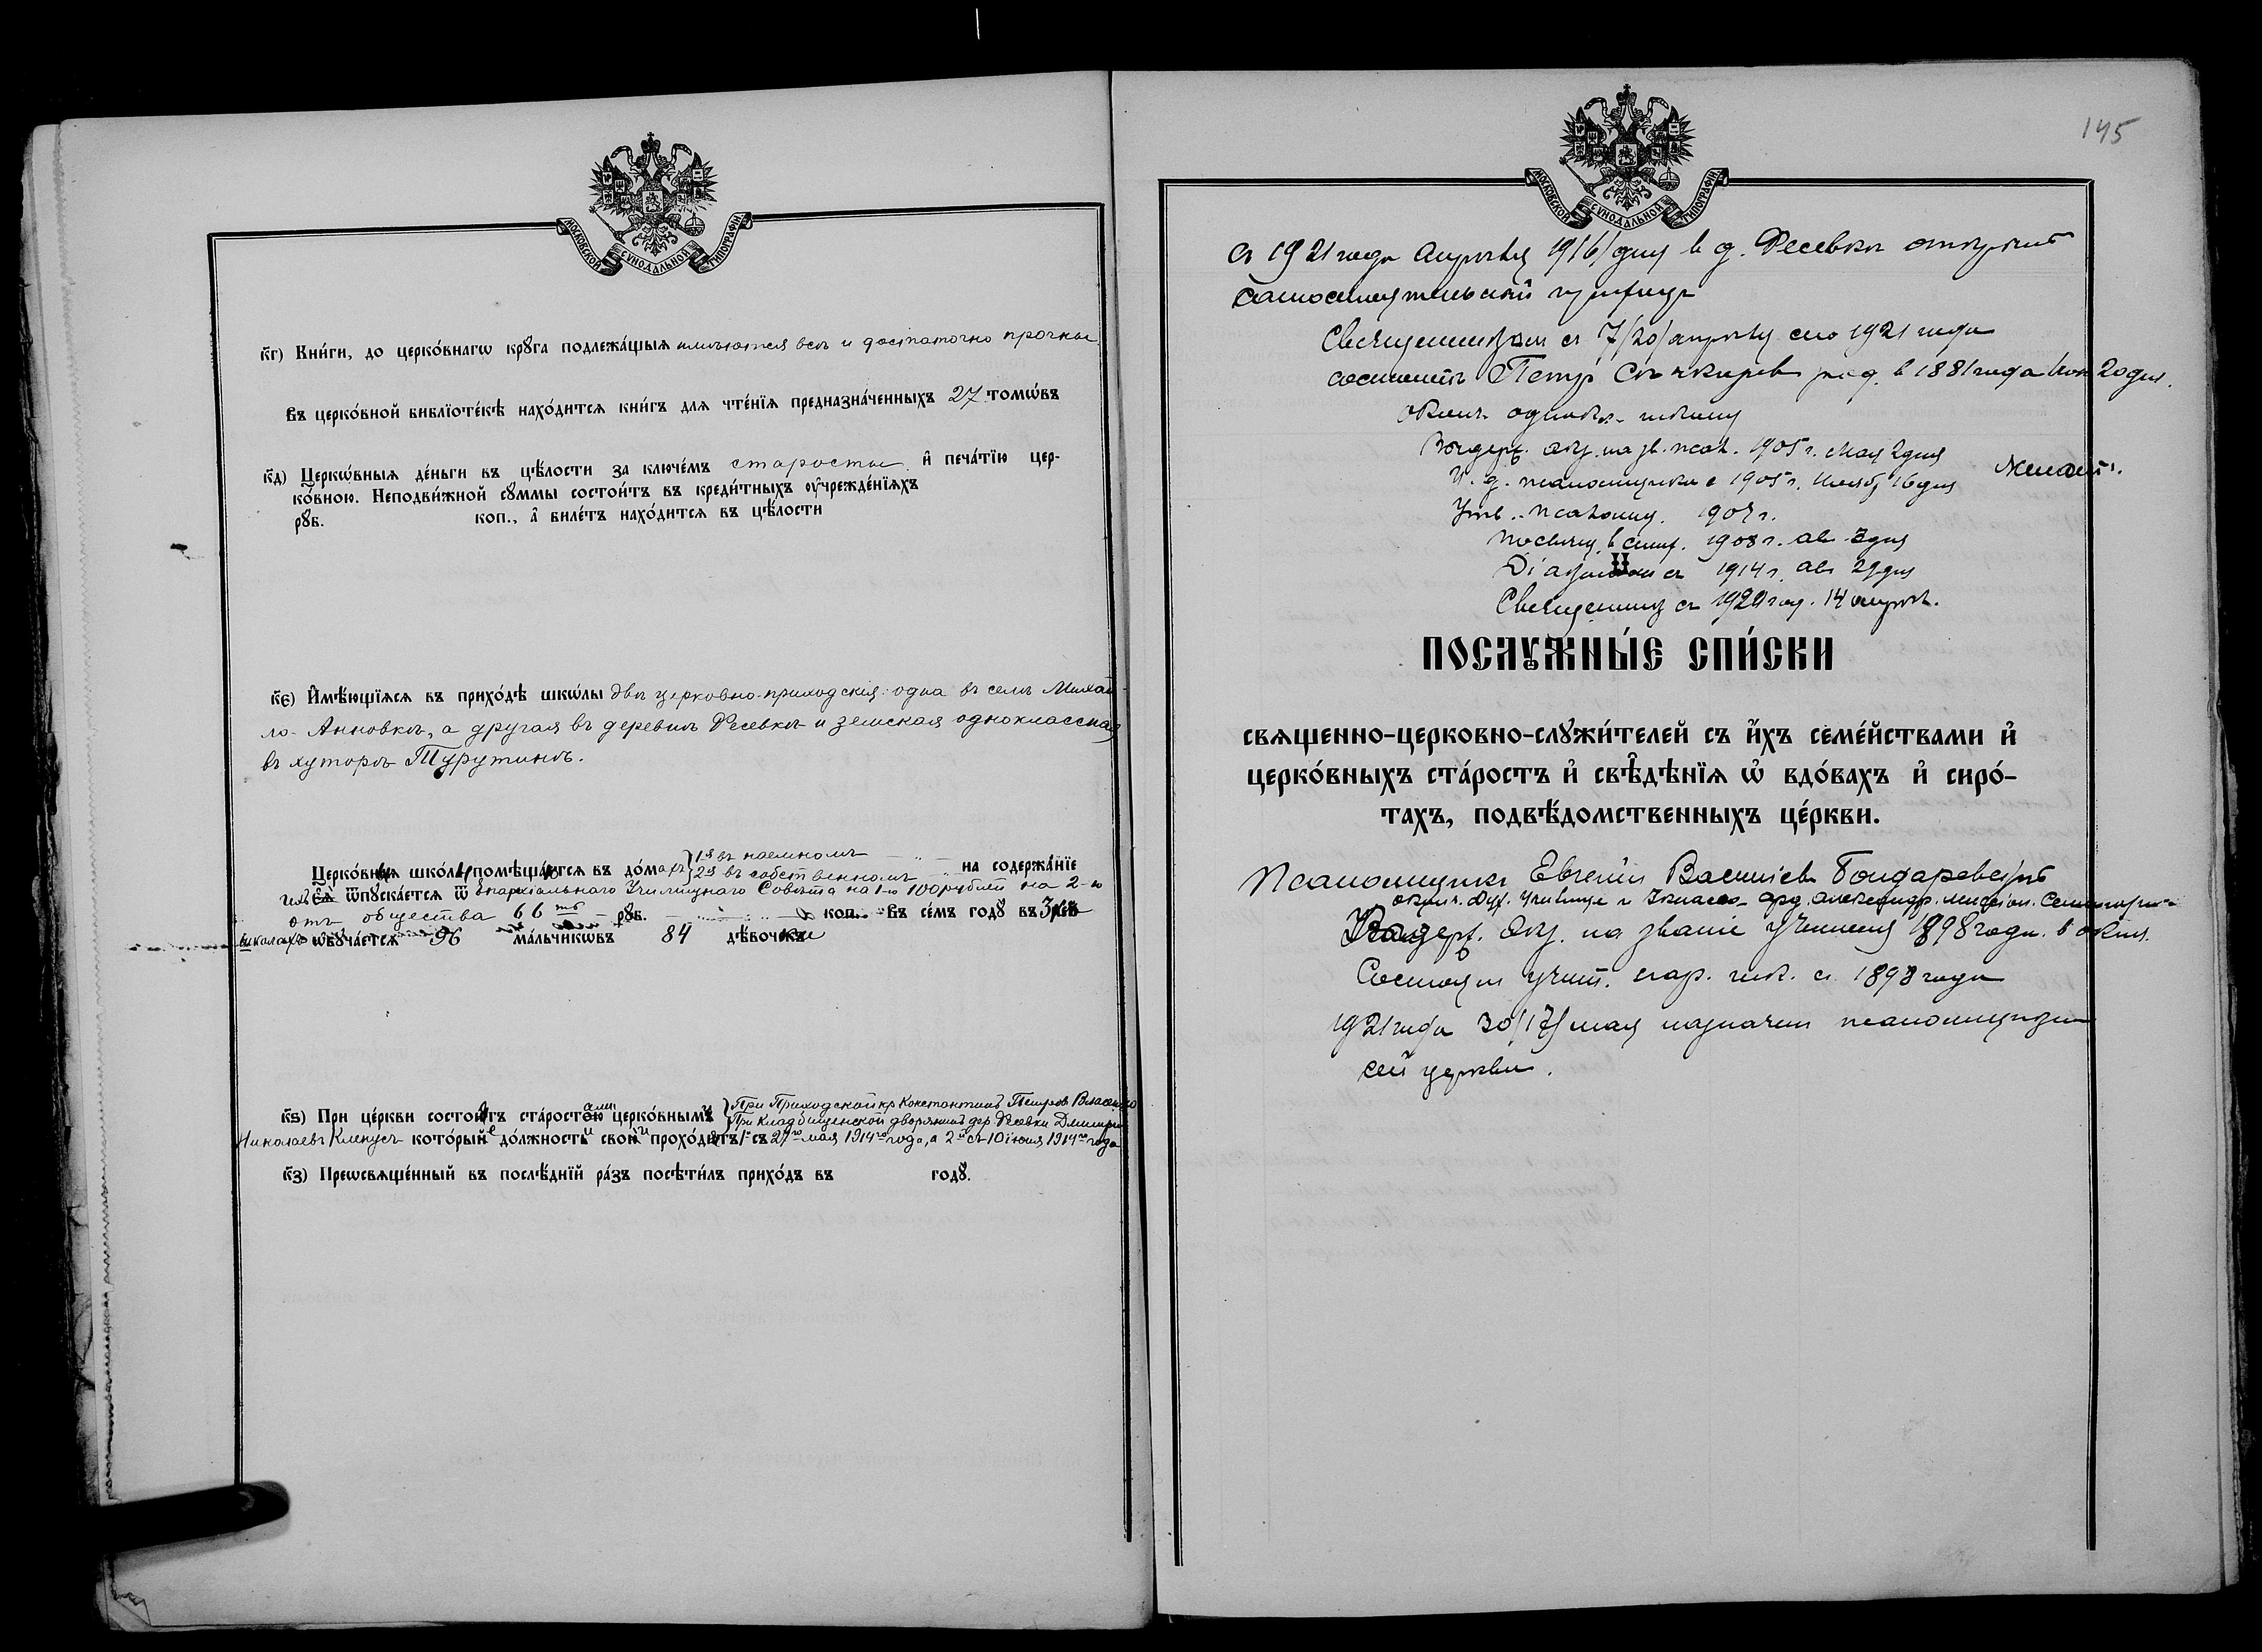 МОСКОВСКОЙ СѴНОДАЛЬНОЙ ТИПОГРАФІИ
к҃г) Кни́ги, до церко́внагѡ крꙋ́га подлежа́щыя имѣются всѣ и достаточно прочные
Въ церко́вной библїоте́кѣ нахо́дится кни́гъ для чте́нїя предназна́ченныхъ 27 томѡ́въ
к҃д) Церкѡ́вныя де́ньги въ цѣ́лости за ключе́мъ старосты и҆ печа́тїю цер-
ко́вною. Неподви́жной сꙋ́ммы состои́тъ въ креди́тныхъ оу҆чрежде́нїяхъ
рꙋб. коп., а҆ биле́тъ нахо́дится въ цѣ́лости
к҃є) И҆мѣ́ющїяся въ прихо́дѣ шкѡ́лы двѣ церковно-приходскія: одна въ селѣ Михай-
ло-Анновкѣ, а другая въ деревнѣ Фесевкѣ и земская одноклассная
въ хуторѣ Турутинѣ.
1я въ наемномъ
Церко́вныя шко́лы помѣща́ются въ дома́хъ 2я въ собственномъ на содержа́нїе
ихъ ѿпꙋска́ется ѿ Епархіальнаго Училищнаго Совѣта на 1-ю 100 рублей на 2-ю
отъ общества 66 рꙋб. коп. Въ се́мъ годꙋ̀ въ 3хъ
школахъ ѡ҆бꙋча́ется 96 ма́льчикѡвъ 84 дѣ́вочки
к҃ѕ) При це́ркви состоя́тъ ста́ростами церко́вными При Приходской кр. Константинъ Петровъ Власенко
При Кладбищенской дворянинъ дер. Фесевки Димитрій
Николаевъ Кленусъ кото́рые до́лжности свои́ прохо́дятъ 1й съ 27го мая 1914го года, а 2й съ 10 іюня 1914го года
к҃з) Преѡсвяще́нный въ послѣ́днїй ра́зъ посѣти́лъ прихо́дъ въ годꙋ̀.
145
МОСКОВСКОЙ СѴНОДАЛЬНОЙ ТИПОГРАФІИ
С 1921 года апрѣля 19/6/ дня в д. Фесевкѣ открыт
самостоятельный приход
Священником с 7/20/ апрѣля сего 1921 года
состоитъ Петр род. в 1881 года 20 дня.
оконч. школу
Выдерж. экз. на зв. псал. 1905 г. Мая 2 дня
И. д. псаломщика с 1905 г. 16 дня Женатъ.
Утв. псаломщ. г.
Посвящ. в стих. 1908 г. ав. 3 дня
Діаконом съ 1914 г. авг. 29 дня
Священник съ год. 14 апрѣл.
ПОСЛꙊЖНЫ́Е СПИ́СКИ
свяще́нно-церко́вно-слꙋжи́телей съ и҆́хъ семе́йствами и҆
церко́вныхъ ста́ростъ и҆ свѣ́дѣнїя ѡ҆ вдо́вахъ и҆ сиро́-
тахъ, подвѣ́домственныхъ це́ркви.
Псаломщикъ Евгеній Васильев Бондаревскій
оконч. Дух. Училище и класса Александр. миссіон. Семинаріи
Выдерж. экз. на званіе учителя 1898 года.
Состоял учит. нар. шк. с 1898 года
1921 года 30/17/ мая назначен псаломщиком
сей церкви.